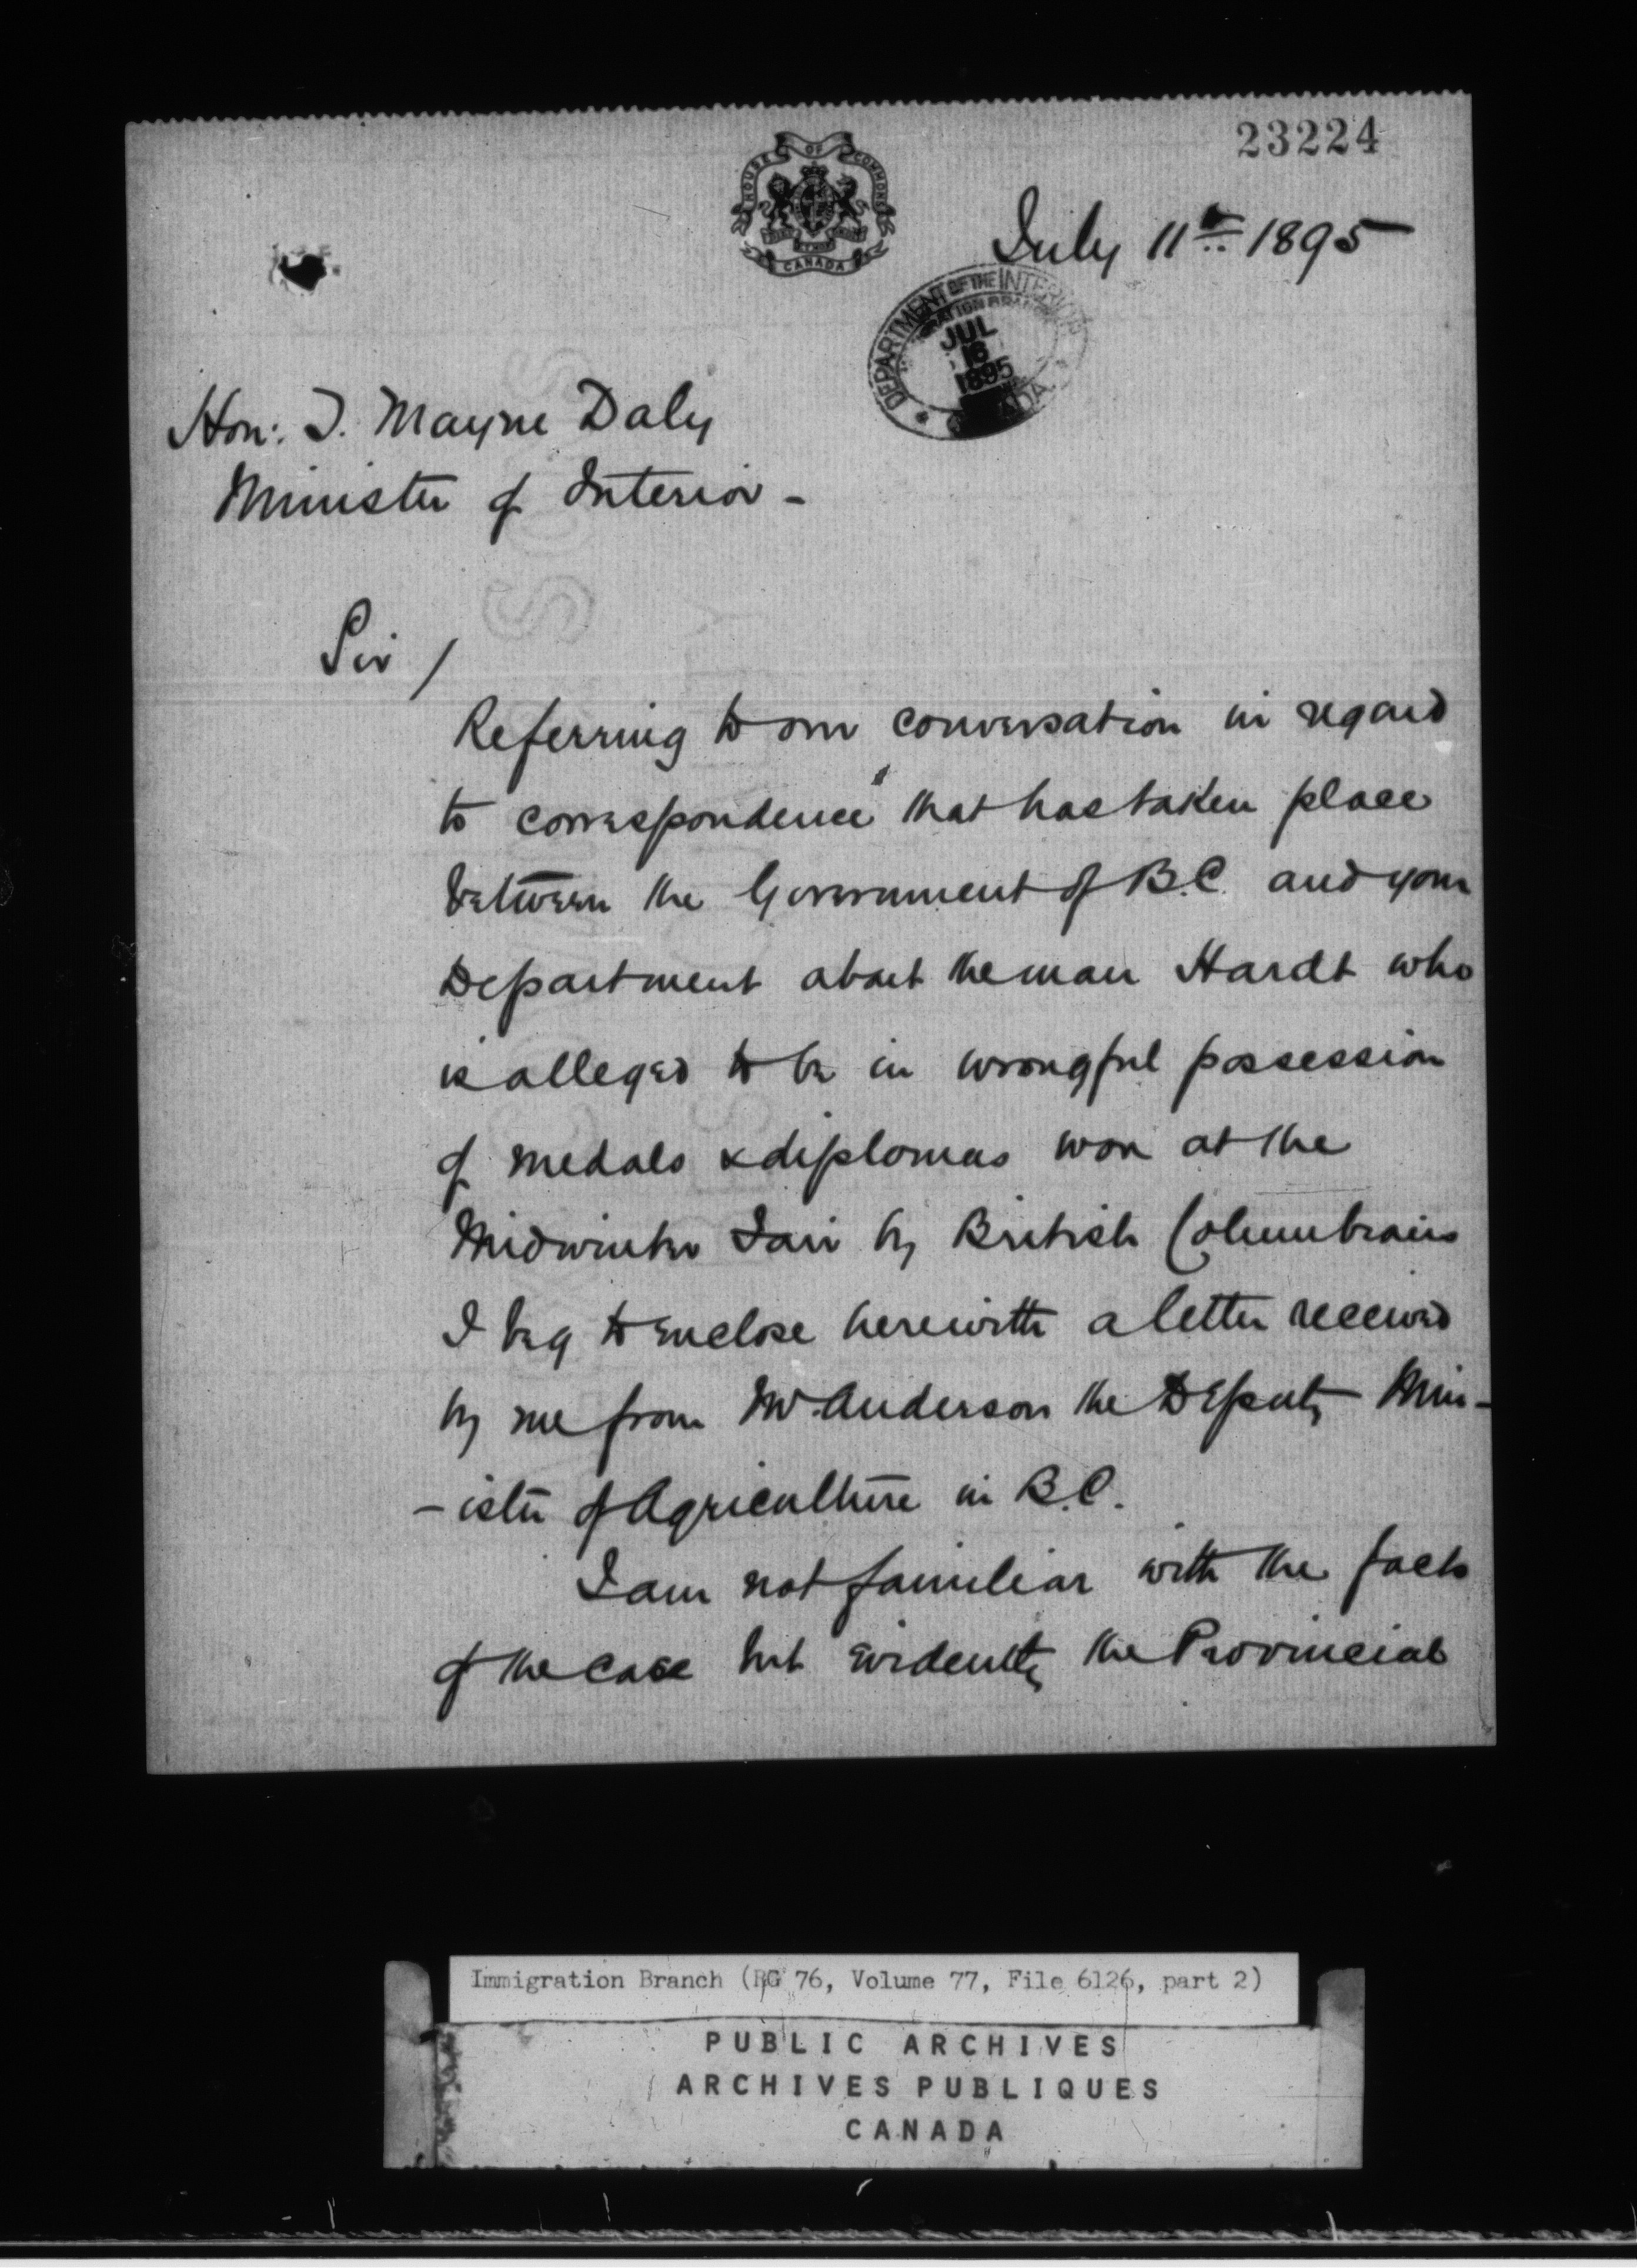 23224
HOUSE OF COMMONS
CANADA
July 11th 1895
DEPARTMENT OF THE INTERIOR
JUL
16
1895
CANADA
Hon: T. Mayne Daly
Minister of Interior -
Sir /
Referring to our conversation in regard
to correspondence that has taken place
between the Government of B.C. and your
Department about the man Hardt who
is alleged to be in wrongful possession
of medals & diplomas won at the
Midwinter Fair by British Columbians
I beg to enclose herewith a letter received
by me from Mr Anderson the Deputy Min-
-ister of Agriculture in B.C.
I am not familiar with the facts
of the case but evidently the Provincial
Immigration Branch (RG 76, Volume 77, File 6126, part 2)
PUBLIC ARCHIVES
ARCHIVES PUBLIQUES
CANADA